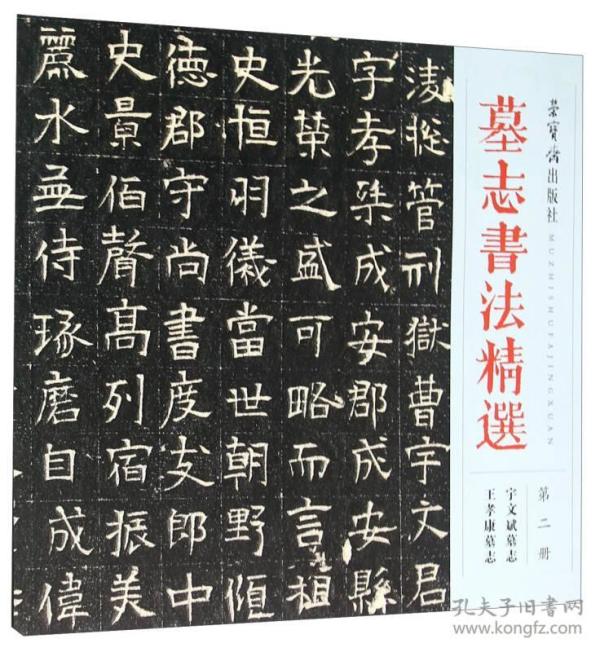 荣宝斋出版社
MUZHISHUFAJINGXUAN
墓志書法精選
第二册
宇文斌墓志
王孝康墓志
淩摐管刑獄曹宇文君
字孝桀成安郡成安縣
光榮之盛可略而言祖
史恒羽儀當世朝野傾
德郡守尚書度支郎中
史景伯聲高列宿振美
麗水無待琢磨自成偉
孔夫子旧書网
www.kongfz.com